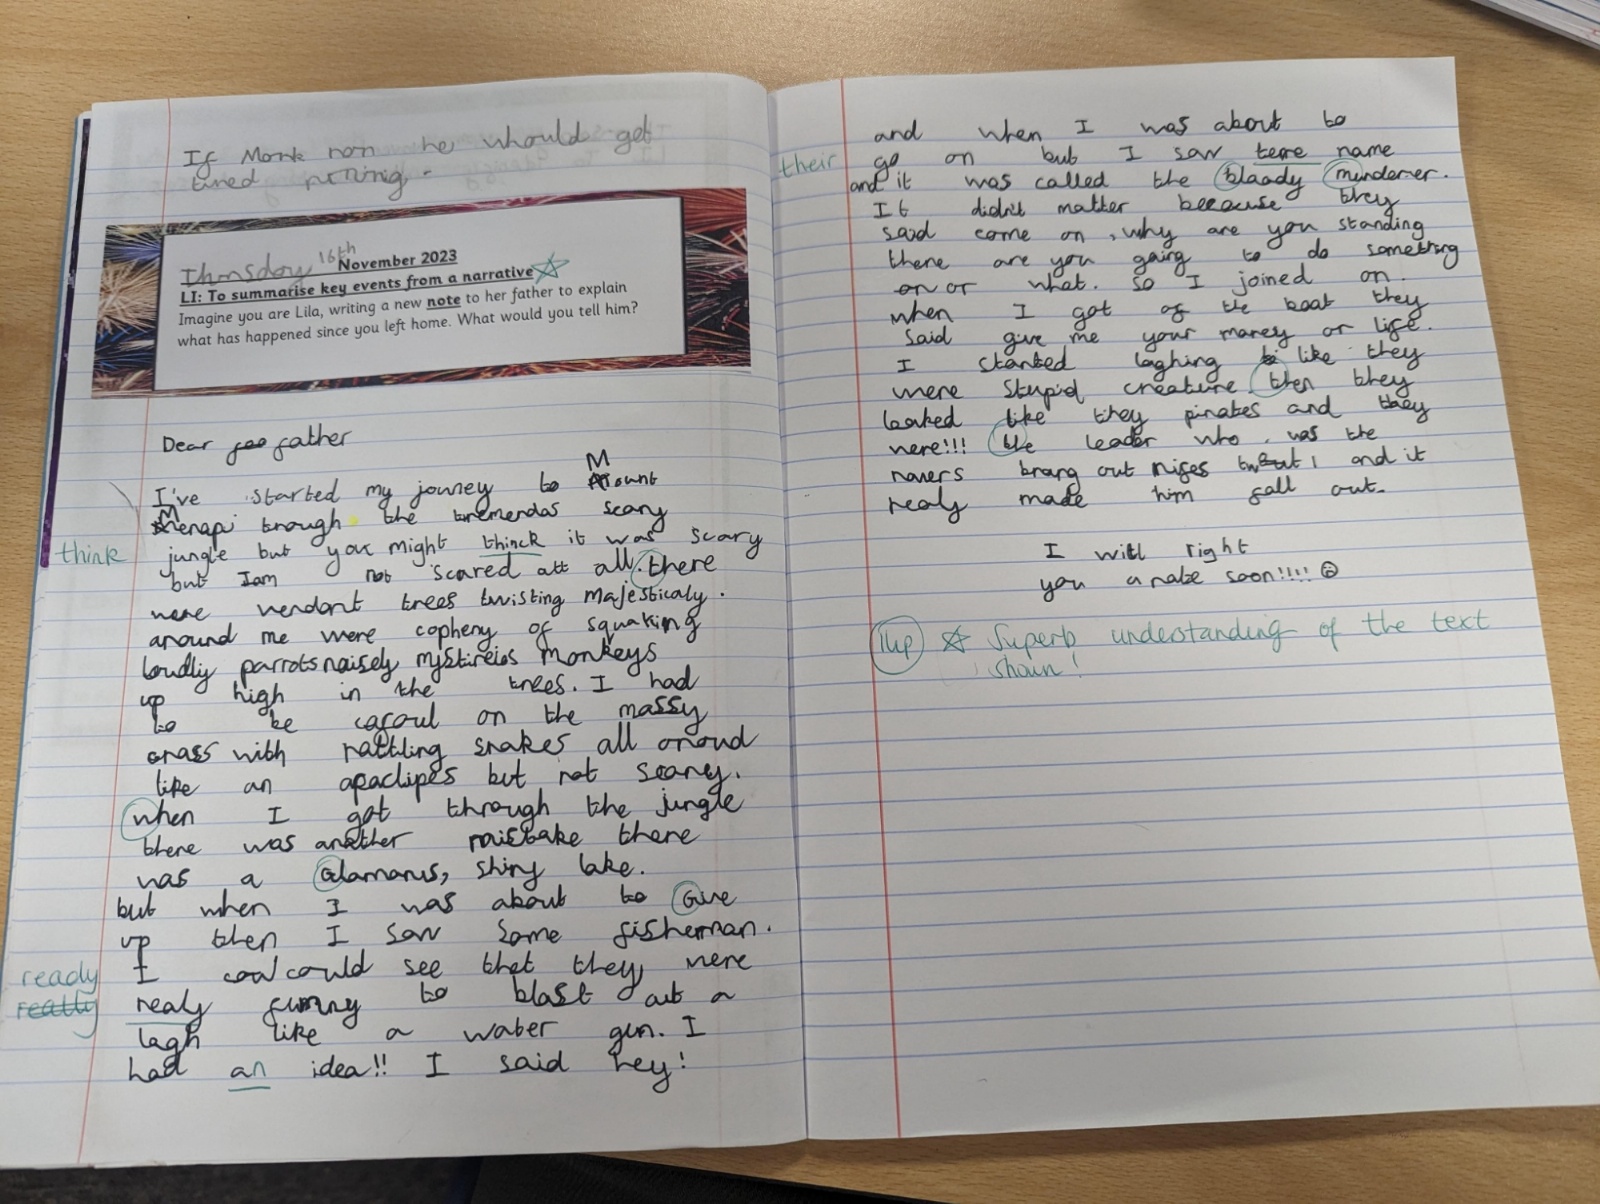 If Mork ron he whould get
tired running.
Thorsday 16th November 2023
LI: To summarise key events from a narrative
Imagine you are Lila, writing a new note to her father to explain
what has happened since you left home. What would you tell him?
Dear father
I've started my journey to Mount
Merapi trough the tremendas scary
think
jungle but you might thinck it was scary
but I am not scared att all. there
were verdant trees twisting majesticaly.
around me were copheny of squaking
loudliy parrots noisely mystireios monkeys
up high in the trees. I had
to be cafoul on the massy
grass with rattling snakes all oroud
like an apaclipes but not scary.
when I got through the jungle
there was another mistake there
was a Glamorus, shiny lake.
but when I was about to Give
up then I saw some fisherman.
I could see that they were
ready
really
realy funny to blast out a
lagh like a water gun. I
had an idea!! I said hey!
and when I was about to
their
go on but I saw tere name
and it was called the bloody murderer.
It didn't matter because they
said come on, why are you standing
there are you going to do something
or what. so I joined on.
when I got of the boat they
said give me your money or life.
I started laghing like they
were stupid creature. then they
looked like they pirates and they
were!!! the leader who was the
ravers brang out nifes and it
realy made him fall out.
I will right
you a note soon!!!!
1up Superb understanding of the text
shown!